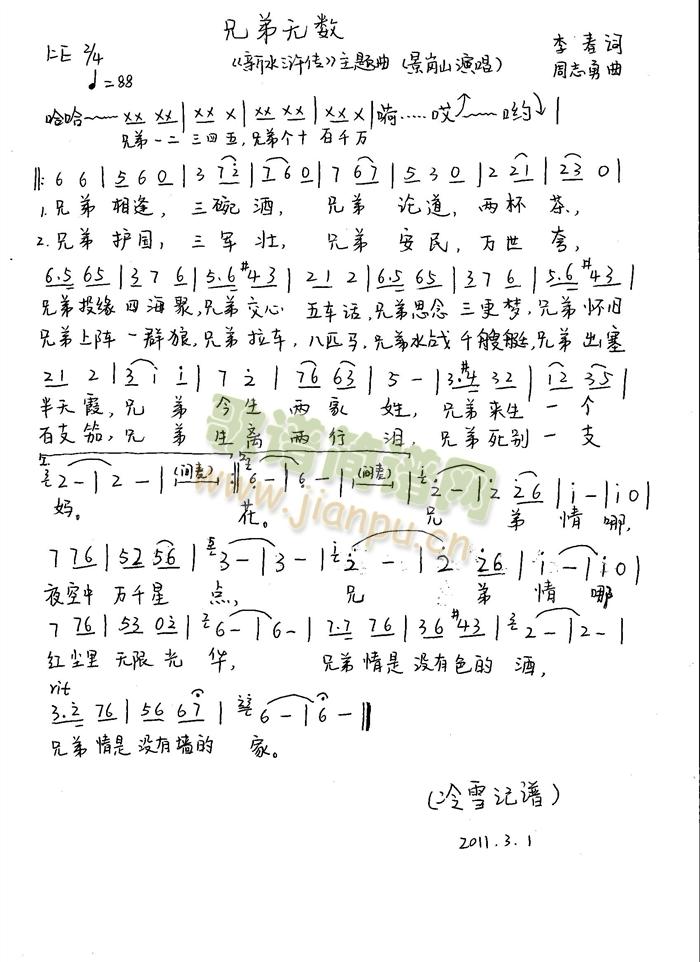 兄弟无数
1=E 2/4
《新水浒传》主题曲（景岗山演唱）
李春词
♩=88
周志勇曲
哈哈 xx xx | xx x | xx xx | xx x | 嗬……哎 哟 |
兄弟一二 三四五,兄弟个十 百千万
‖: 6 6 | 5 6 0 | 3 7 2 | 7 6 0 | 7 6 7 | 5 3 0 | 2 2 1 | 2 3 0 |
1.兄弟 相逢, 三碗酒, 兄弟 论道, 两杯茶,
2.兄弟 护国, 三军壮, 兄弟 安民, 万世夸,
6.5 65 | 3 7 6 | 5.6 #43 | 2 1 2 | 6.5 65 | 3 7 6 | 5.6 #43 |
兄弟投缘 四海聚,兄弟交心 五车话,兄弟思念 三更梦,兄弟怀旧
兄弟上阵 一群狼,兄弟拉车, 八匹马,兄弟水战 千艘艇,兄弟出塞
21 2 | 3 i i | 7 2 | 76 63 | 5 - | 3.#4 32 | 12 35 |
半天霞, 兄弟今生 两家姓, 兄弟来生 一个
百支笳, 兄弟生离 两行泪, 兄弟死别 一支
2 - | 2 - | (间奏) :‖ 6 - | 6 - | (间奏) | 2 - | 2 26 | i - | i 0 |
妈。 花。 兄 弟 情 哪,
7 76 | 52 56 | 3 - | 3 - | 2 - | 2 26 | i - | i 0 |
夜空中 万千星 点, 兄 弟 情 哪
7 76 | 53 02 | 6 - | 6 - | 7.7 76 | 36 #43 | 2 - | 2 - |
红尘里 无限光 华, 兄弟情是 没有色的 酒,
rit
3.2 76 | 56 67 | 6 - | 6 - ‖
兄弟情是 没有墙的 家。
(冷雪记谱)
2011.3.1
歌谱简谱网
www.jianpu.cn